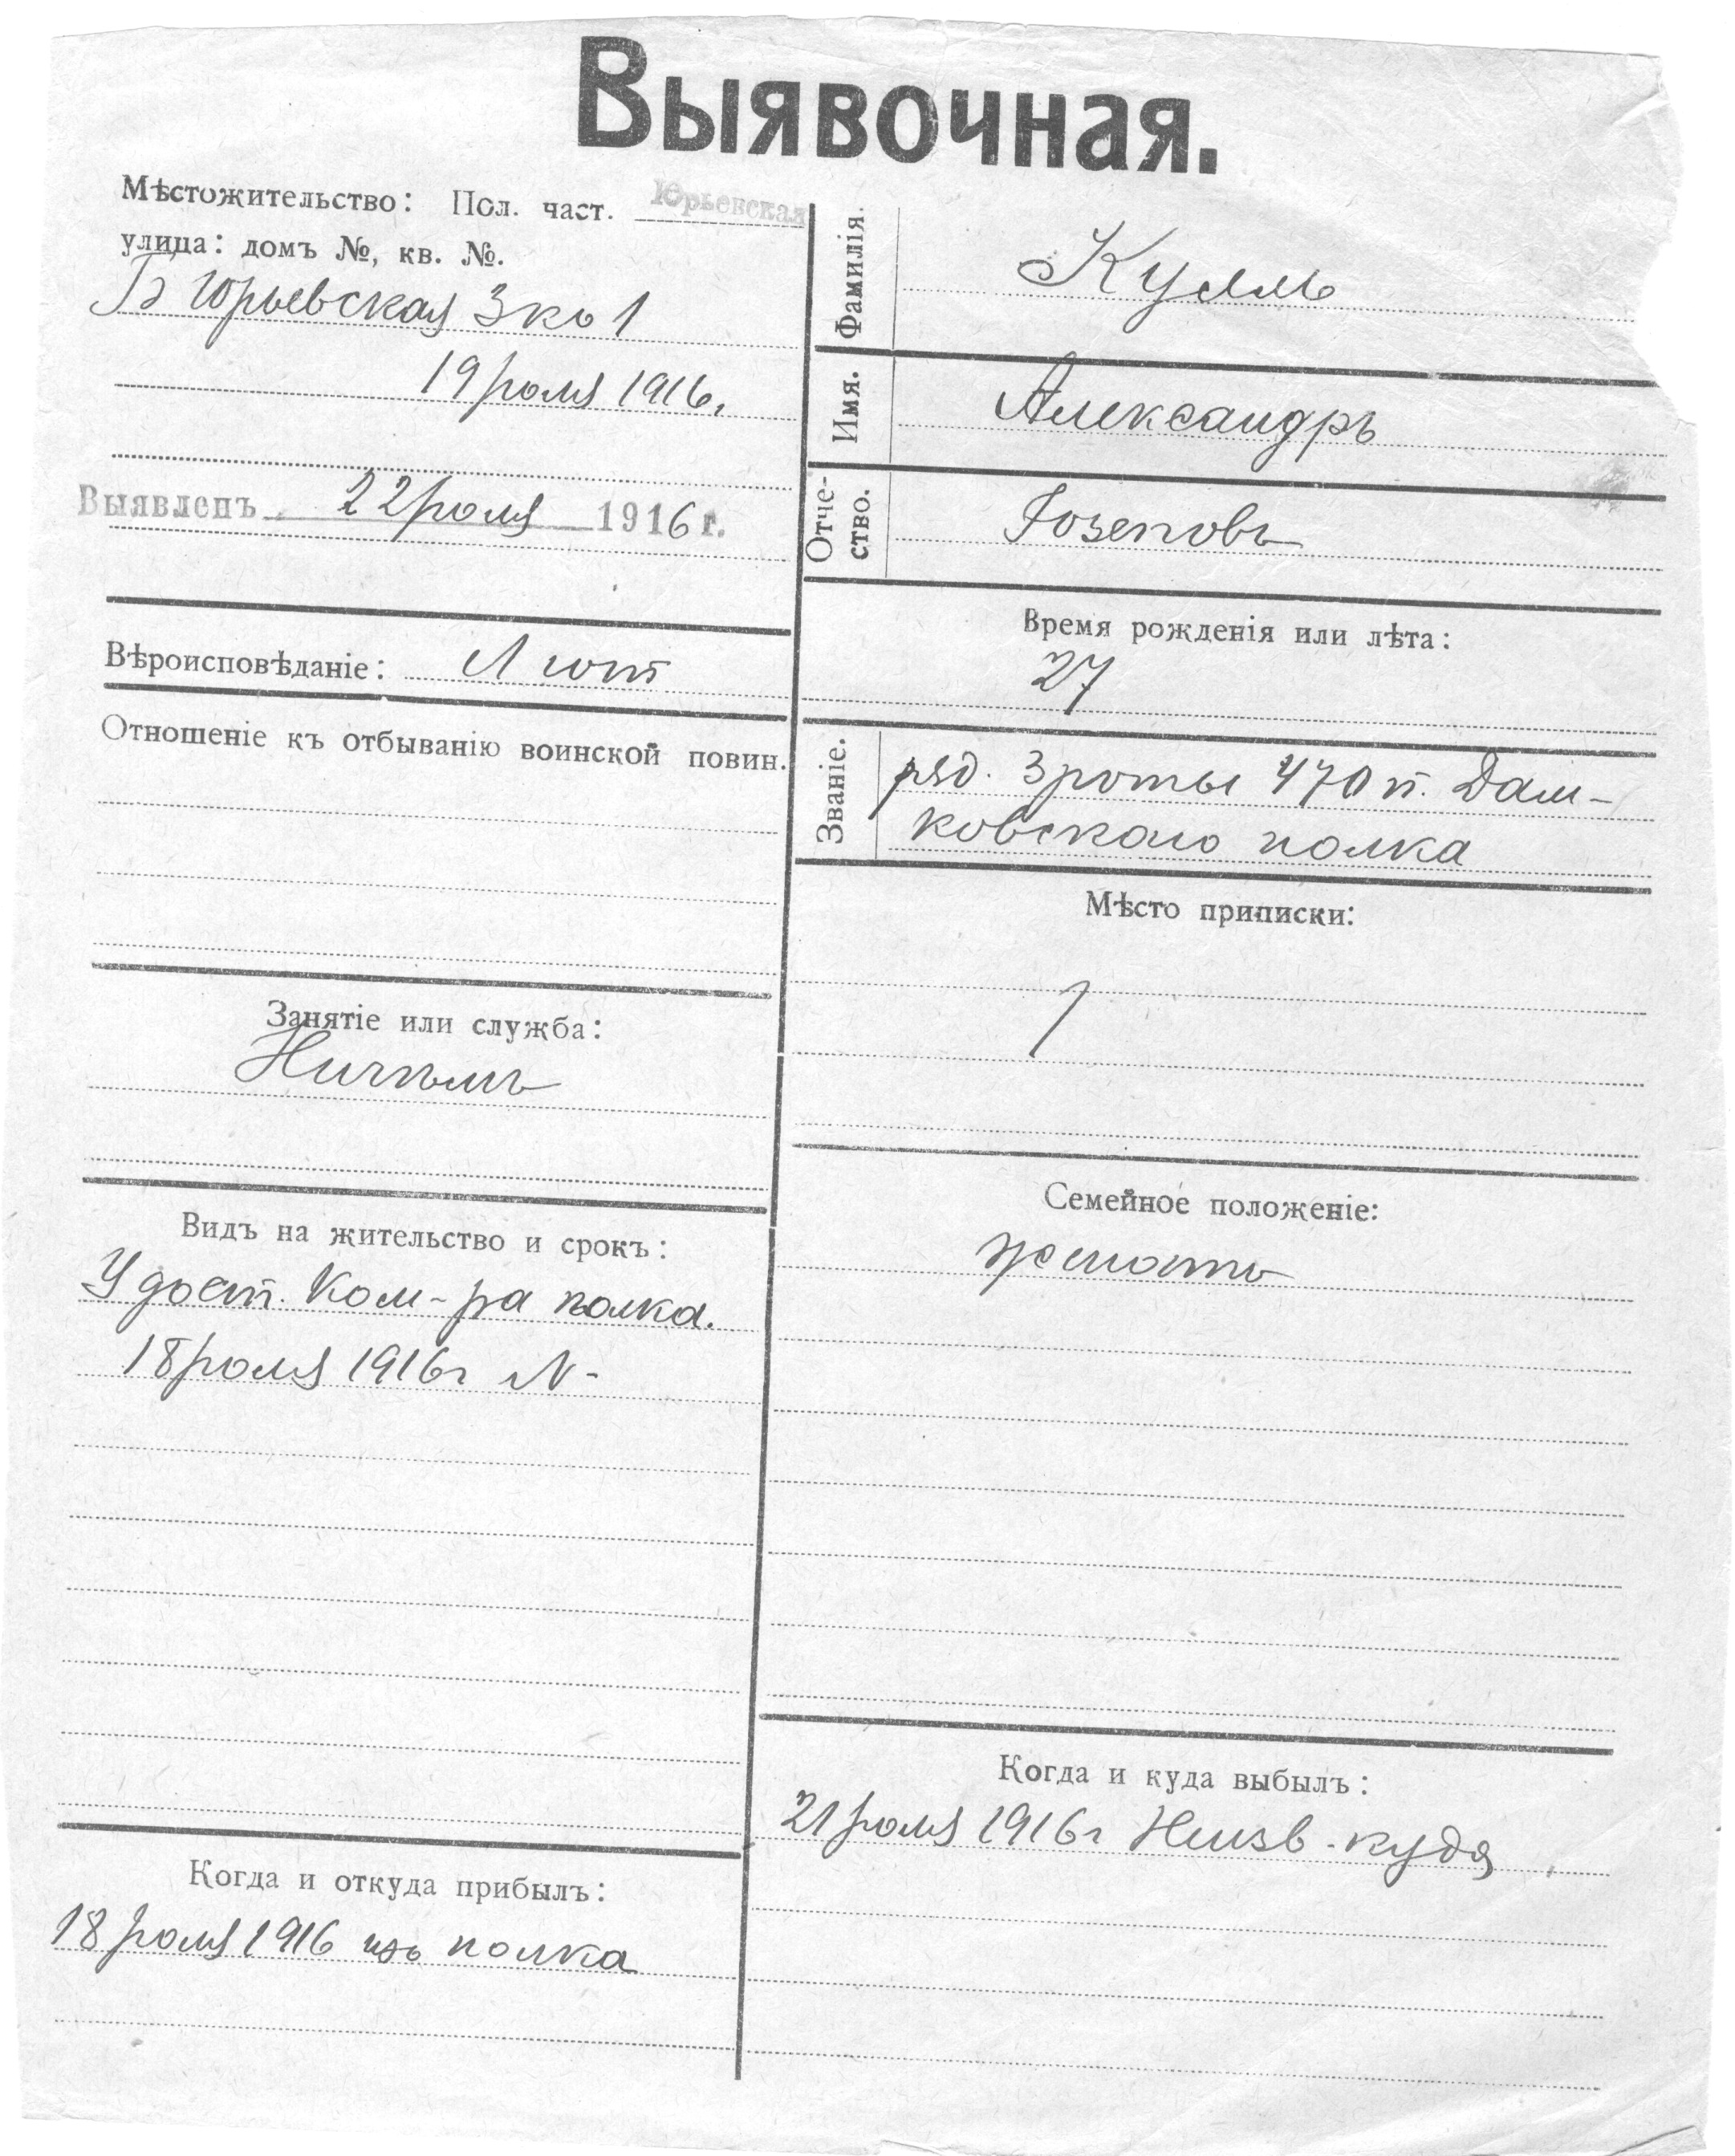 Выявочная.
Мѣстожительство: Пол. част. Юрьевская
улица: домъ №, кв. №.
Б Юрьевская 3 кв 1
19 Іюля 1916.
Выявленъ 22 Іюля 1916 г.
Вѣроисповѣданіе: Лют
Отношеніе къ отбыванію воинской повин.
Занятіе или служба:
Ничѣмъ
Видъ на жительство и срокъ:
Удост. Ком-ра полка.
18 Іюля 1916 г N -
Когда и откуда прибылъ:
18 Іюля 1916 изъ полка
Фамилія.
Кулль
Имя.
Александръ
Отче-
ство.
Іозеповъ
Время рожденія или лѣта:
27
Званіе.
ряд. 3 роты 470 п. Дан-
ковскаго полка
Мѣсто приписки:
Семейное положеніе:
женатъ
Когда и куда выбылъ:
21 Іюля 1916 г Неизв - куда